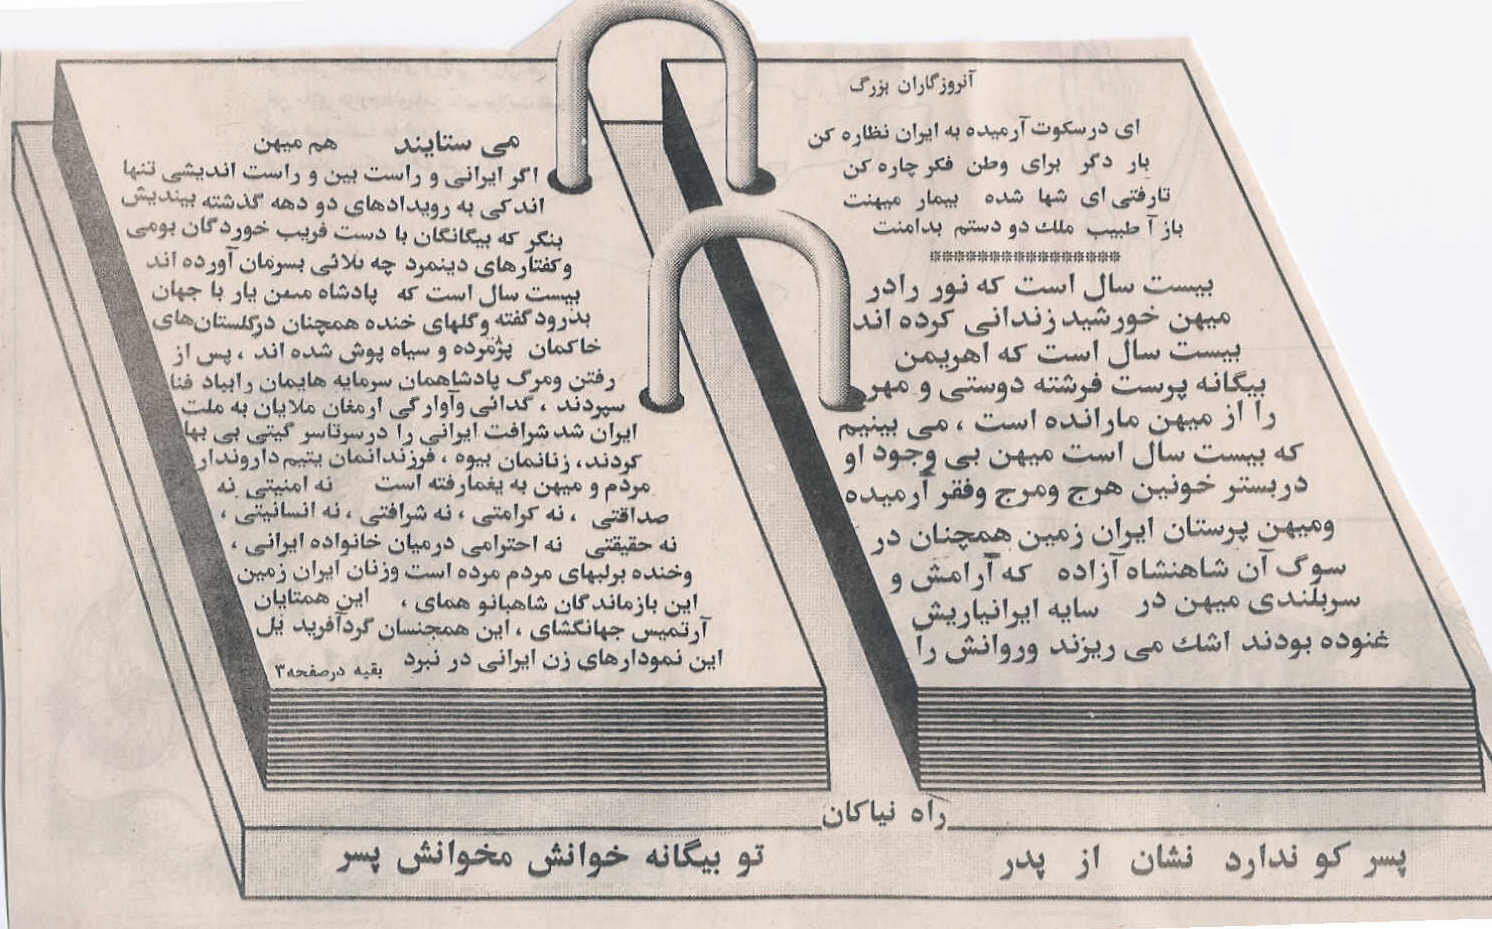 آنروزگاران بزرگ
ای درسکوت آرمیده به ایران نظاره کن
بار دگر برای وطن فکر چاره کن
تارفتی ای شها شده بیمار میهنت
باز آ طبیب ملك دو دستم بدامنت
****************
بیست سال است که نور رادر
میهن خورشید زندانی کرده اند
بیست سال است که اهریمن
بیگانه پرست فرشته دوستی و مهر
را از میهن مارانده است ، می بینیم
که بیست سال است میهن بی وجود او
دربستر خونین هرج ومرج وفقر آرمیده
ومیهن پرستان ایران زمین همچنان در
سوگ آن شاهنشاه آزاده که آرامش و
سربلندی میهن در سایه ایرانیاریش
غنوده بودند اشك می ریزند وروانش را
می ستایند هم میهن
اگر ایرانی و راست بین و راست اندیشی تنها
اندکی به رویدادهای دو دهه گذشته بیندیش
بنگر که بیگانگان با دست فریب خوردگان بومی
وکفتارهای دینمرد چه بلائی بسرمان آورده اند
بیست سال است که پادشاه میهن یار با جهان
بدرود گفته وگلهای خنده همچنان درگلستان‌های
خاکمان پژمرده و سیاه پوش شده اند ، پس از
رفتن ومرگ پادشاهمان سرمایه هایمان رابباد فنا
سپردند ، گدائی وآوارگی ارمغان ملایان به ملت
ایران شد شرافت ایرانی را درسرتاسر گیتی بی بها
کردند، زنانمان بیوه ، فرزندانمان یتیم داروندار
مردم و میهن به یغمارفته است نه امنیتی نه
صداقتی ، نه کرامتی ، نه شرافتی ، نه انسانیتی ،
نه حقیقتی نه احترامی درمیان خانواده ایرانی ،
وخنده برلبهای مردم مرده است وزنان ایران زمین
این بازماندگان شاهبانو همای ، این همتایان
آرتمیس جهانگشای ، این همجنسان گردآفرید یل
این نمودارهای زن ایرانی در نبرد
بقیه درصفحه۳
راه نیاکان
پسر کو ندارد نشان از پدر
تو بیگانه خوانش مخوانش پسر